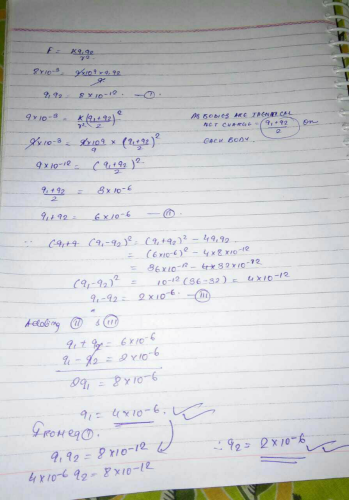 F = kq₁q₂/r²
8×10⁻³ = 9×10⁹ × q₁q₂/9
q₁q₂ = 8×10⁻¹² — (I)
9×10⁻³ = k/r² (q₁+q₂/2)²
AS BODIES ARE IDENTICAL
NET CHARGE = (q₁+q₂/2) on
EACH BODY.
9×10⁻³ = 9×10⁹/9 × (q₁+q₂/2)²
9×10⁻¹² = (q₁+q₂/2)²
q₁+q₂/2 = 3×10⁻⁶
q₁+q₂ = 6×10⁻⁶ — (II)
∵ (q₁+q (q₁-q₂)² = (q₁+q₂)² - 4q₁q₂
= (6×10⁻⁶)² - 4×8×10⁻¹²
= 36×10⁻¹² - 4×32×10⁻¹²
(q₁-q₂)² = 10⁻¹²(36-32) = 4×10⁻¹²
q₁-q₂ = 2×10⁻⁶ — (III)
Adding (II) & (III)
q₁+q₂ = 6×10⁻⁶
q₁-q₂ = 2×10⁻⁶
2q₁ = 8×10⁻⁶
q₁ = 4×10⁻⁶.
From eq (I).
q₁q₂ = 8×10⁻¹²
4×10⁻⁶ q₂ = 8×10⁻¹²
∴ q₂ = 2×10⁻⁶